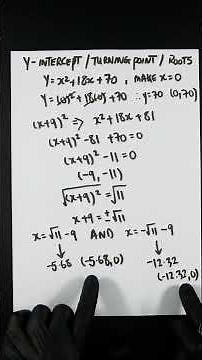 Y-INTERCEPT / TURNING POINT / ROOTS
y = x² + 18x + 70 , MAKE x = 0
y = (0)² + 18(0) + 70 ∴ y = 70 (0,70)
(x+9)² ⇒ x² + 18x + 81
(x+9)² - 81 + 70 = 0
(x+9)² - 11 = 0
(-9, -11)
√(x+9)² = √11
x+9 = ±√11
x = √11 - 9 AND x = -√11 - 9
-5.68 (-5.68,0) -12.32
(-12.32,0)